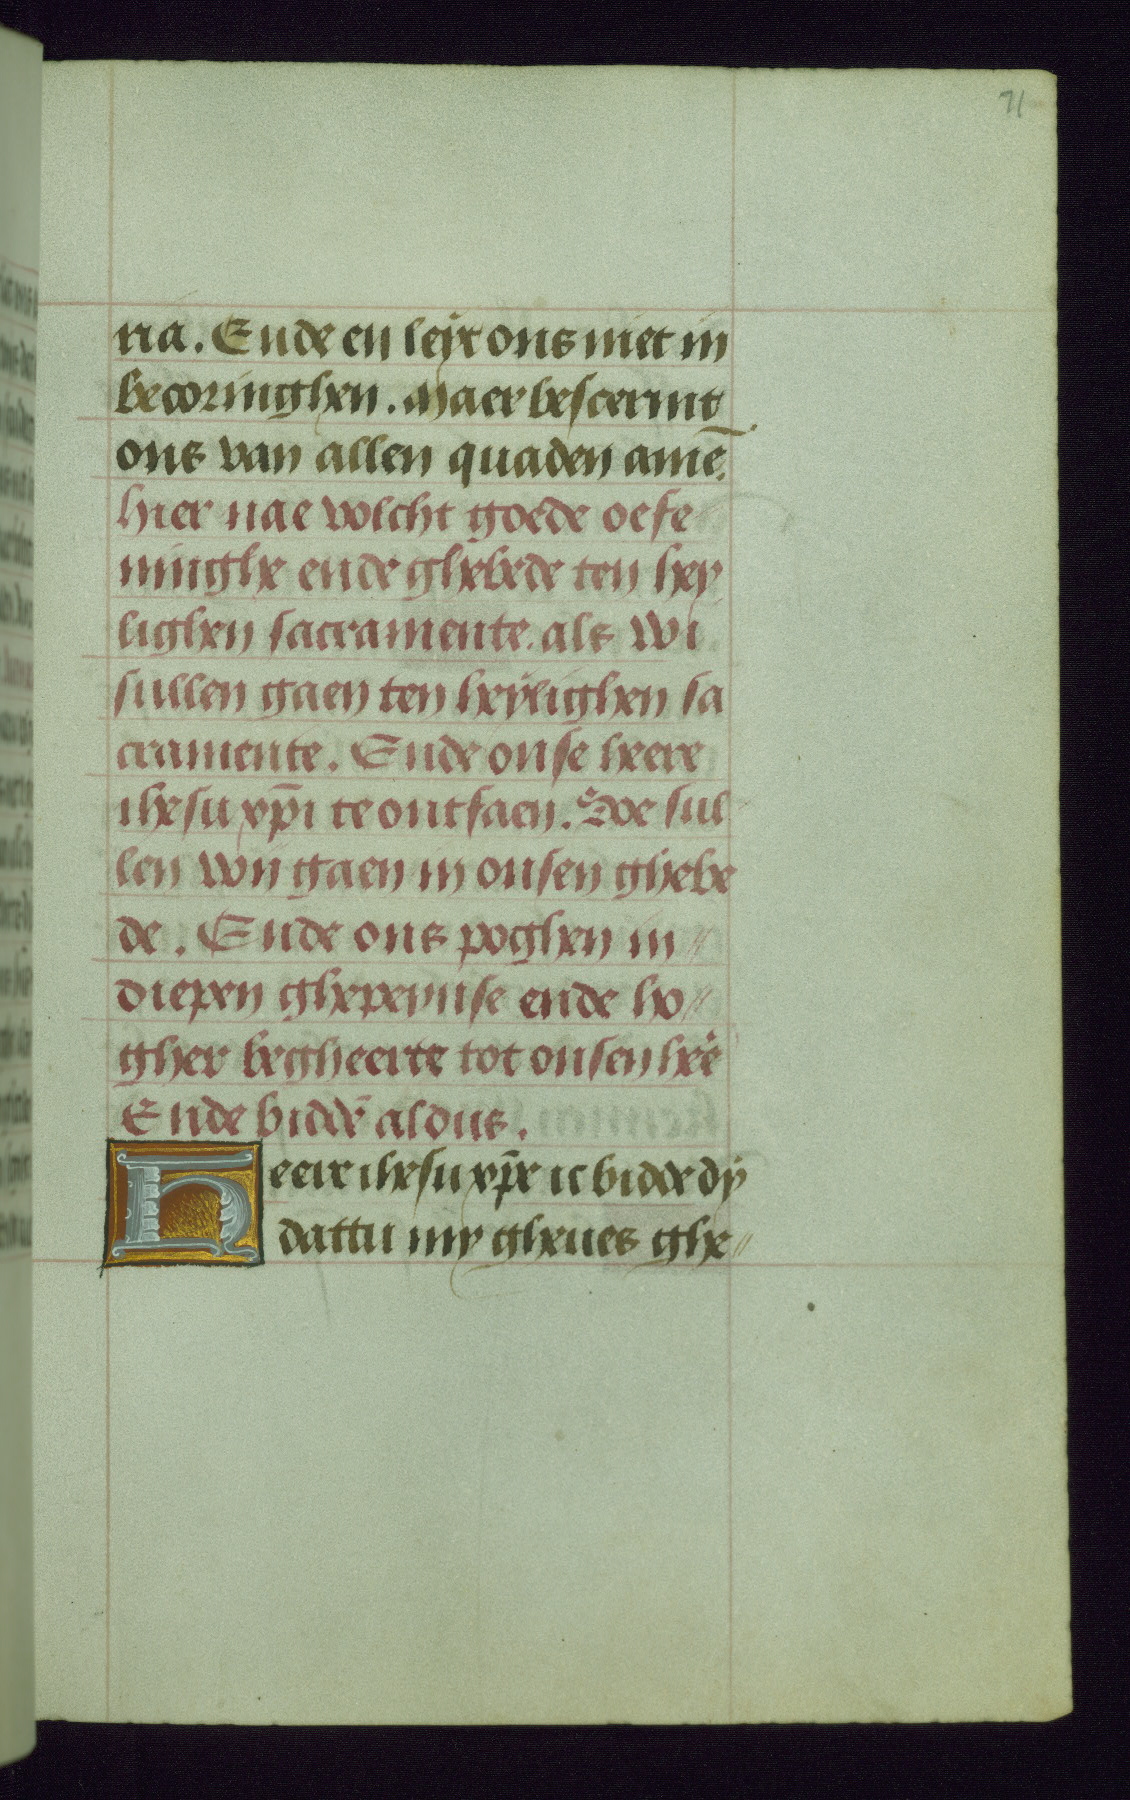 71
ria. Ende en leyt ons niet in
becoringhen. Maer beschermt
ons van allen quaden amē.
hier nae volcht goede oefe
ninghe ende ghebede ten hey
lighen sacramente. als wi
sullen gaen ten heylighen sa
cramente. Ende onse heere
ihesu xp̄i te ontfaen. Soe sul
len wij gaen in onsen ghebe
de. Ende ons poghen in //
diepen ghepeynse ende ho //
gher begheerte tot onsen heē
Ende biddē aldus.
Heere ihesu xp̄e ic bidde dy
dattu my gheues ghe //